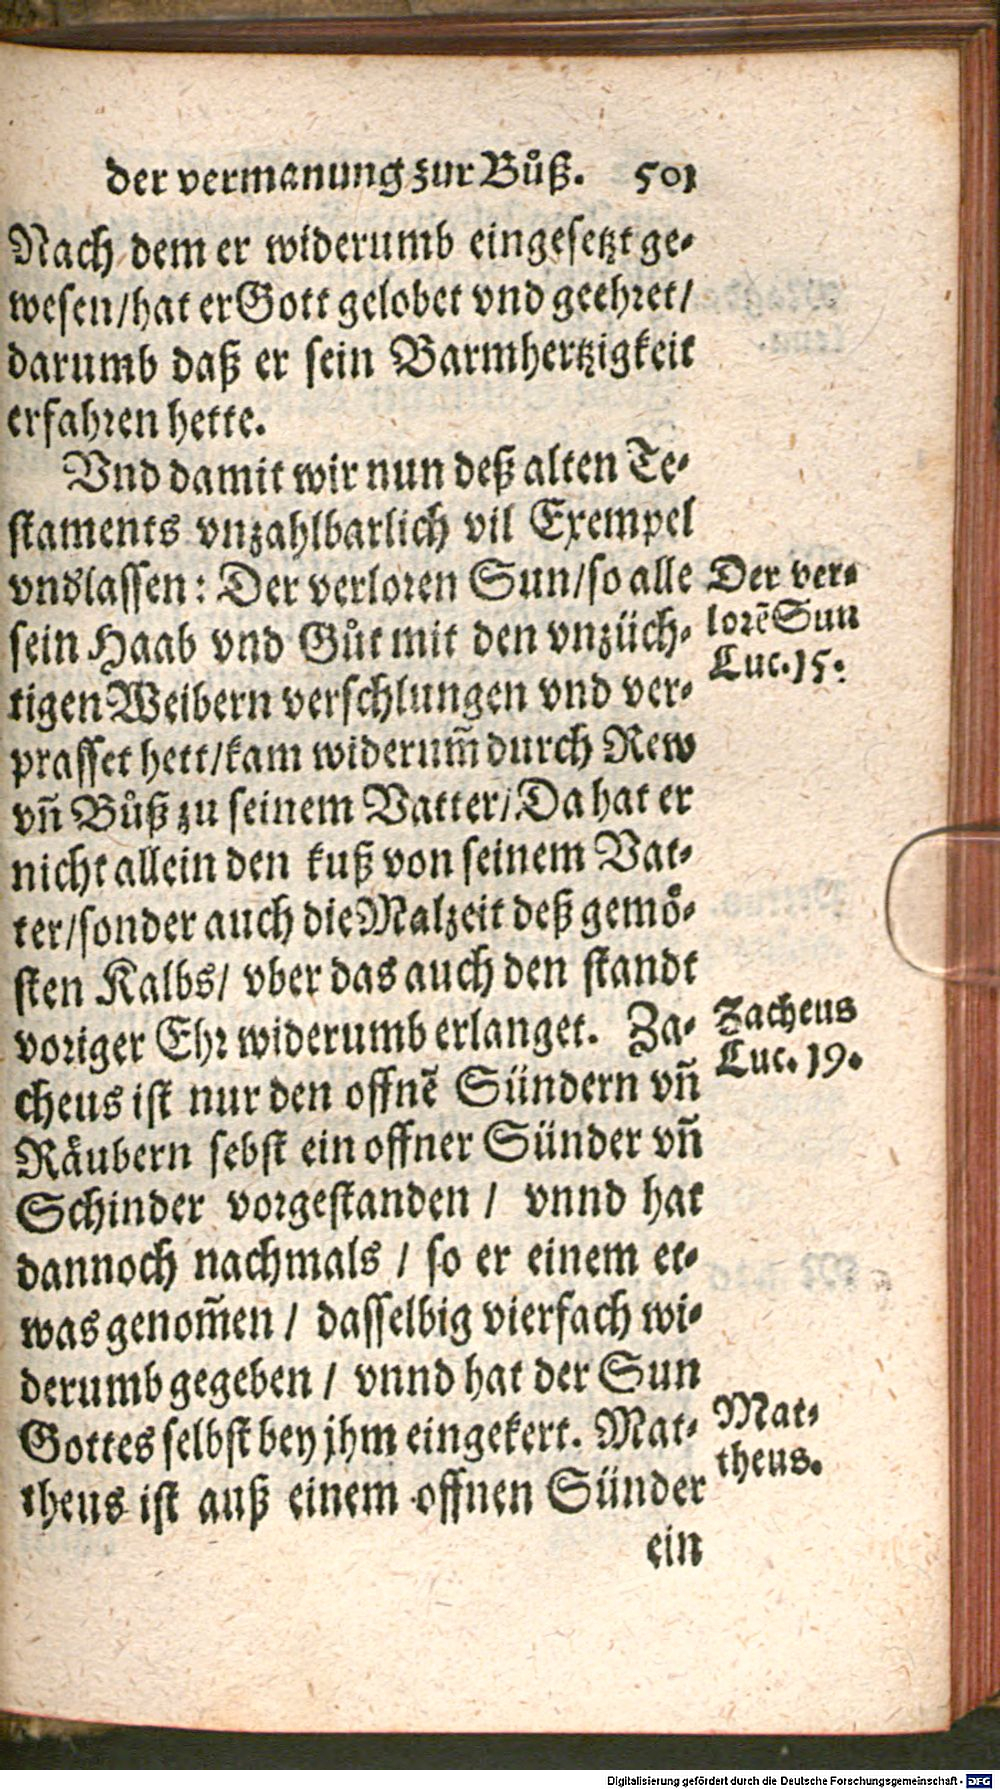 der vermanung zur Bůß. 501
Nach dem er widerumb eingesetzt ge-
wesen/hat er Gott gelobet vnd geehret/
darumb daß er sein Barmhertzigkeit
erfahren hette.
Vnd damit wir nun deß alten Te-
staments vnzahlbarlich vil Exempel
vndlassen: Der verloren Sun/so alle
sein Haab vnd Gůt mit den vnzüch-
tigen Weibern verschlungen vnd ver-
prasset hett/kam widerum̃ durch Rew
vñ Bůß zu seinem Vatter/Da hat er
nicht allein den kuß von seinem Vat-
ter/sonder auch die Malzeit deß gemö-
sten Kalbs/ vber das auch den standt
voriger Ehr widerumb erlanget. Za-
cheus ist nur den offnẽ Sündern vñ
Räubern sebst ein offner Sünder vñ
Schinder vorgestanden / vnnd hat
dannoch nachmals / so er einem et-
was genom̃en / dasselbig vierfach wi-
derumb gegeben / vnnd hat der Sun
Gottes selbst bey jhm eingekert. Mat-
theus ist auß einem offnen Sünder
ein
Der ver-
lorẽ Sun
Luc. 15.
Zacheus
Luc. 19.
Mat-
theus.
Digitalisierung gefördert durch die Deutsche Forschungsgemeinschaft - DFG